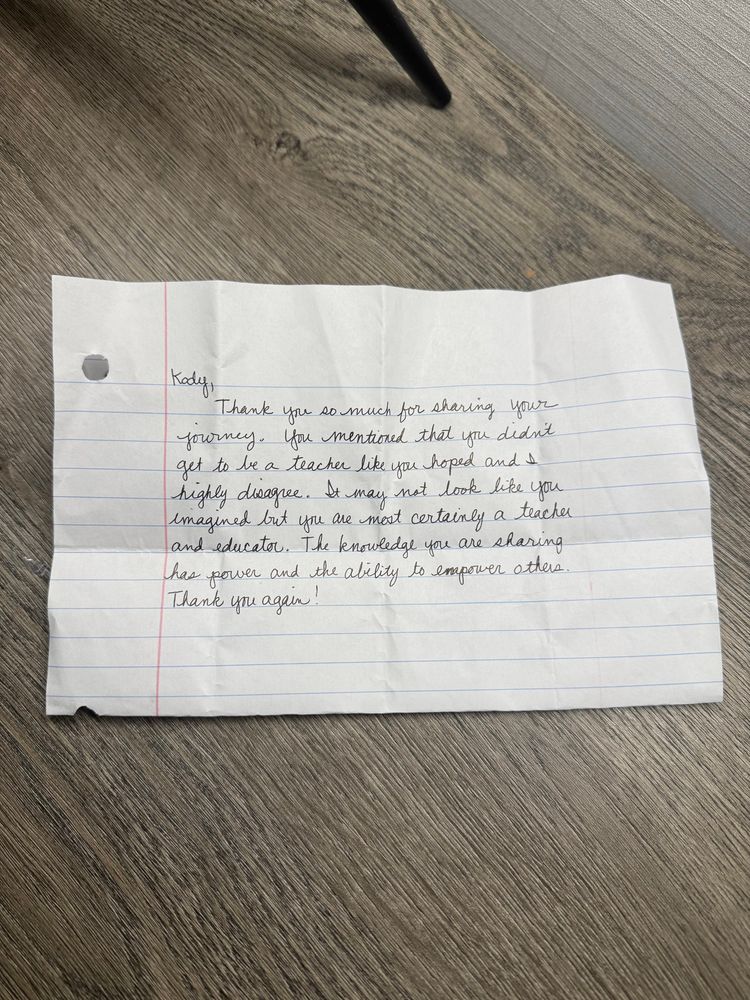 Kody,
Thank you so much for sharing your
journey. You mentioned that you didn't
get to be a teacher like you hoped and I
highly disagree. It may not look like you
imagined but you are most certainly a teacher
and educator. The knowledge you are sharing
has power and the ability to empower others.
Thank you again!